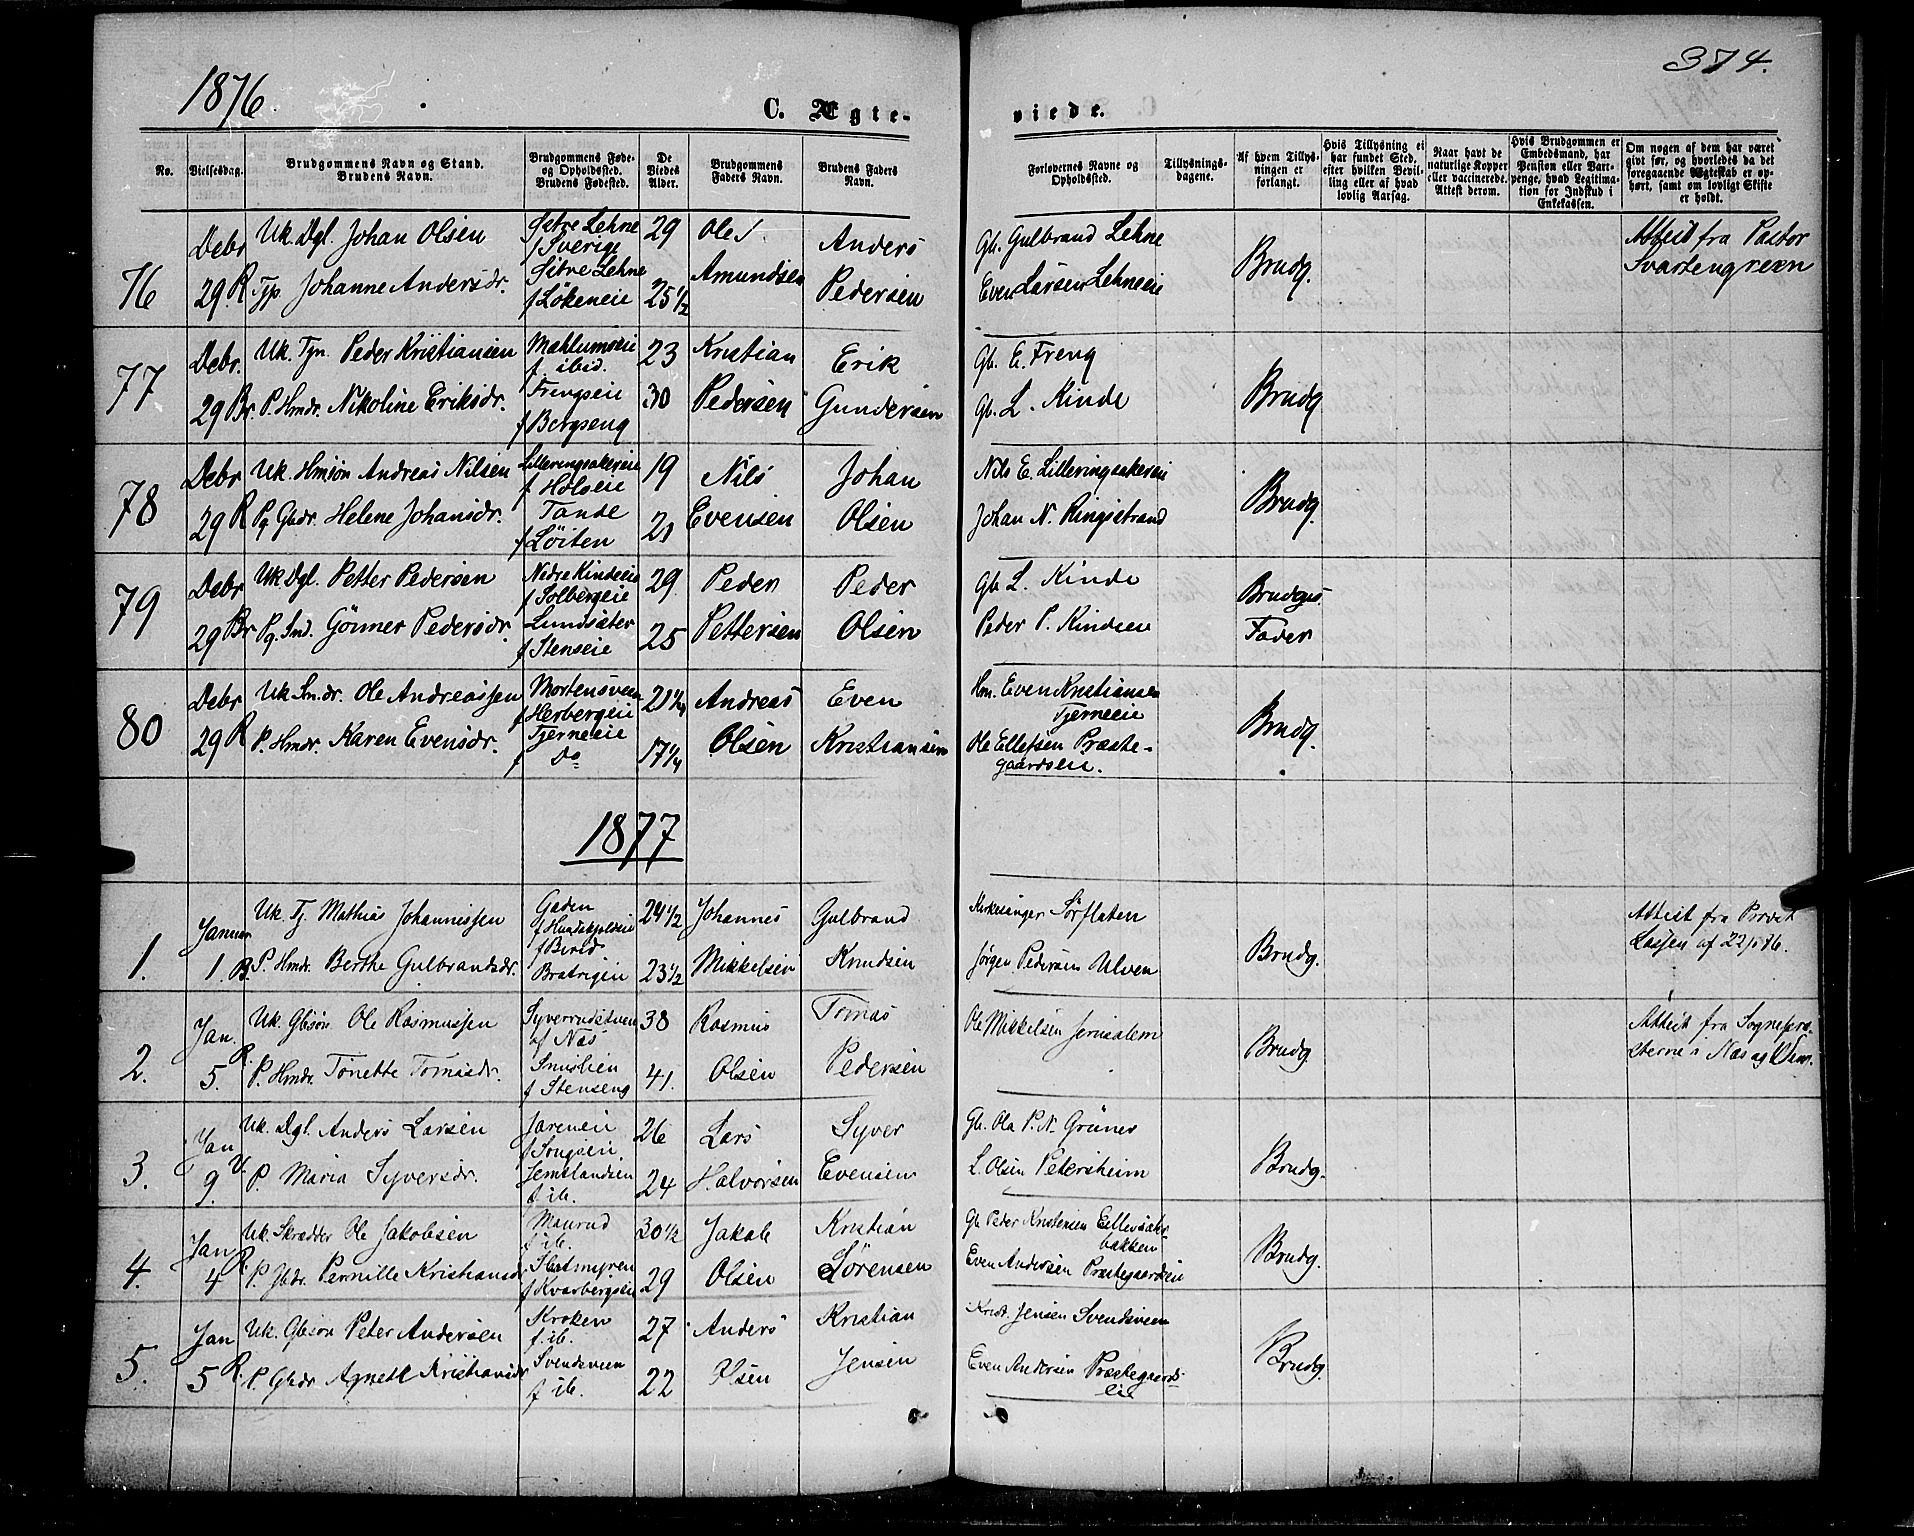 1876
374.
C. Ægte-
viede.
No.
Vielsesdag.
Brudgommens Navn og Stand.
Brudens Navn.
Brudgommens Føde-
og Opholdssted.
Brudens Fødested.
De
Viedes
Alder.
Brudgommens
Faders Navn.
Brudens Faders
Navn.
Forlovernes Navne og
Opholdssted.
Tillysnings-
dagene.
Af hvem Tillys-
ningen er
forlangt.
Hvis Tillysning ei
har fundet Sted,
efter hvilken Bevil-
ling eller af hvad
lovlig Aarsag.
Naar havt de
naturlige Kopper
eller vaccinerede.
Attest derom.
Hvis Brudgommen er
Embedsmand, har
Pension eller Var-
penge, hvad Legitima-
tion for Indskud i
Enkekassen.
Om nogen af dem har været
givt før, og hvorledes da det
foregaaende Ægteskab er op-
hørt, samt om lovligt Skifte
er holdt.
76
Debr
29 R
Uk. Dgl. Johan Olsen
Tjp Johanne Andersdr.
Setre Lehne
f Sverige
Sitre Lehne
f Løkeneie
29
25 1/2
Ole
Amundsen
Anders
Pedersen
Gb. Gulbrand Lehne
Even Larsen Lehneeie
Brudg.
Attest fra Pastor
Svartengreen
77
Debr.
29 Br
Uk. Tjn Peder Kristiansen
P. Hmdr. Nikoline Eriksdr.
Mahlumseie
f. ibid.
Frengseie
f Bergseng
23
30
Kristian
Pedersen
Erik
Gundersen
Gb. E. Freng
Gb. L. Kinde
Brudg
78
Debr
29 R
Uk. Hmsøn Andreas Nilsen
Pg Gbdr. Helene Johansdr.
Lilleringsakereie
f Holseie
Tande
f Løiten
19
21
Nils
Evensen
Johan
Olsen
Nils E. Lilleringsakereie
Johan N. Ringsetrand
Brudg.
79
Debr
29 Br
Uk Dgl. Petter Pedersen
Pg. Smd. Gønner Pedersdr
Nedre Kindeeie
f Solbergeie
Lundsæter
f Stenseie
29
25
Peder
Pettersen
Peder
Olsen
Gb L. Kinde
Peder P. Kindeeie
Brudgs.
Fader
80
Debr
29 R
Uk Sn.dr. Ole Andreassen
P. Hmdr. Karen Evensdr.
Mortensveen
f Herbergeie
Tjerneeie
f Do
21 1/4
17 1/4
Andreas
Olsen
Even
Kristiansen
Hm. Even Kristiansen
Tjerneeie
Ole Ellefsen Præste-
gaardseie.
Brudg.
1877
1.
Januar
1. B.
Uk. Tj. Mathias Johannessen
P. Hmdr. Berthe Gulbrandsdr.
Gaden
f Hundskjoldseie
f Birid.
Bratrigeie
24 1/2
23 1/2
Johannes
Mikkelsen
Gulbrand
Knudsen
Kirkesanger Sørflaten
Jørgen Pedersen Ulven
Brudg.
Attest fra Provst
Lassen af 22/8 76.
2.
Jan.
5. R.
Uk. Gbsøn Ole Rasmussen
P. Hmdr. Tonette Tomasdr.
Syverrudstuen
af Næs
Smislien
f Stenseng
38
41.
Rasmus
Olsen
Tomas
Pedersen
Ole Mikkelsen Jerusalem
Brudg
Attest fra Sognepræ-
sterne i Næs og
3.
Jan
9. V.
Uk. Dgl. Anders Larsen
P. Maria Syversdr.
Jareneie
f Songseie.
Jemtlandseie
f. ib.
26
24
Lars
Halvorsen
Syver
Evensen
Gb. Ola P. N. Grûner
L. Olsen Petersheim
Brudg.
4.
Jan
4 R.
Uk. Skrædder Ole Jakobsen
P. Gbdr. Pernille Kristiansdr
Maurud
f. ib.
Slotmyren
f Kvarbergseie
30 1/2
29
Jakob
Olsen
Kristian
Sørensen
Gb Peder Kristensen Ellevsæter-
bakken
Even Andersen Præstegaardseie
Brudg.
5.
Jan
5 R.
Uk. Gbsøn Peter Andersen
P. Gbdr Agnethe Kristiansdr
Kroken
f. ib.
Svendsveen
f ib.
27
22
Anders
Olsen
Kristian
Jensen
Krist. Jensen Svendsveen
Even Andersen Præstegaards-
eie
Brudg.